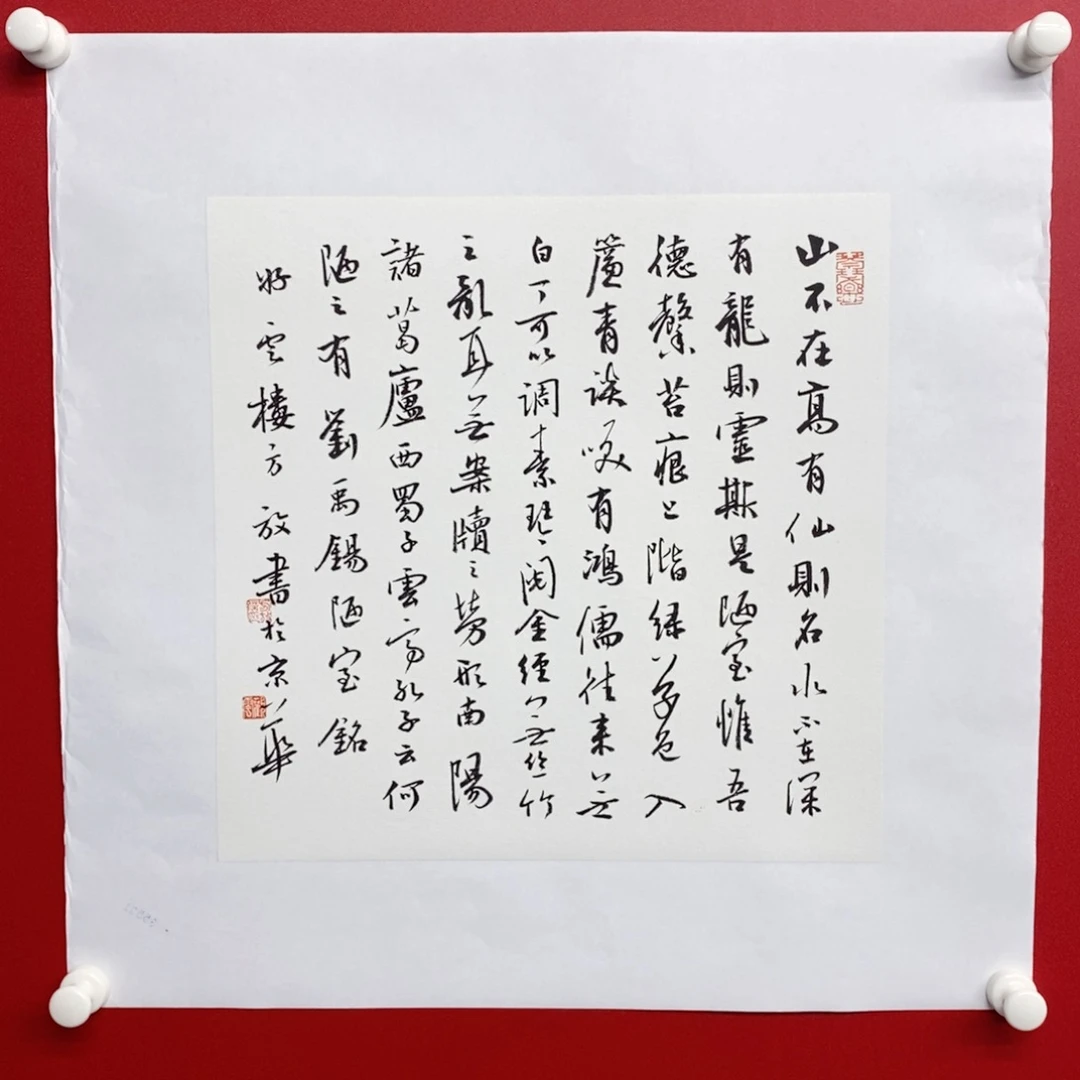 山不在高有仙則名水不在深
有龍則靈斯是陋室惟吾
德馨苔痕上階緑草色入
簾青談咲有鴻儒往來無
白丁可以调素琴閱金經無丝竹
之亂耳無案牘之勞形南陽
諸葛廬西蜀子雲亭孔子云何
陋之有劉禹錫陋室銘
好雲樓方放書於京華